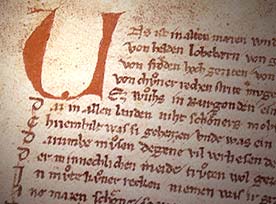 UNs ist in alten maren wund
von helden lobebern von g
von froͤden hochgeziten von
von chuͦner rechen strite muge
Ez wuͦhs in Burgonden ein
Daz in allen landen niht schoners moh
chriemhilt was si geheizen unde was ein
darumbe muͦsen degene vil verliesen
Der minneclichen meide truͤten wol gez
in muͦte kuͤner recken niemen was ir g
ane mazen schone so